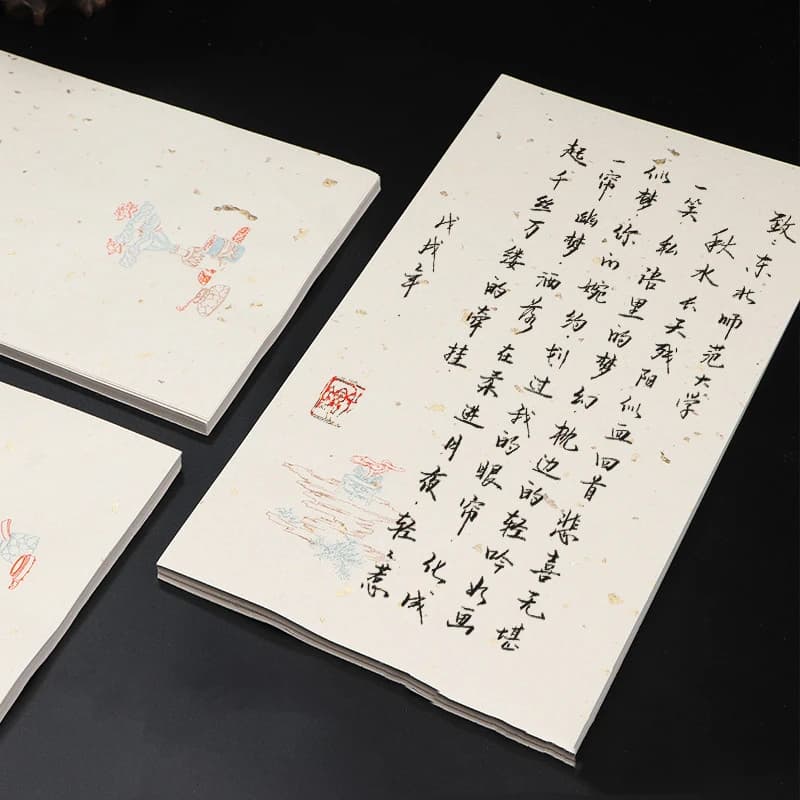 致:东北师范大学
秋水长天残阳似血回首悲喜无堪
一笑私语里的梦幻枕边的轻吟如画
似梦你的婉约划过我的眼帘化成
一帘幽梦洒落在柔进月夜轻、惹
起千丝万缕的牵挂
戊戌之年